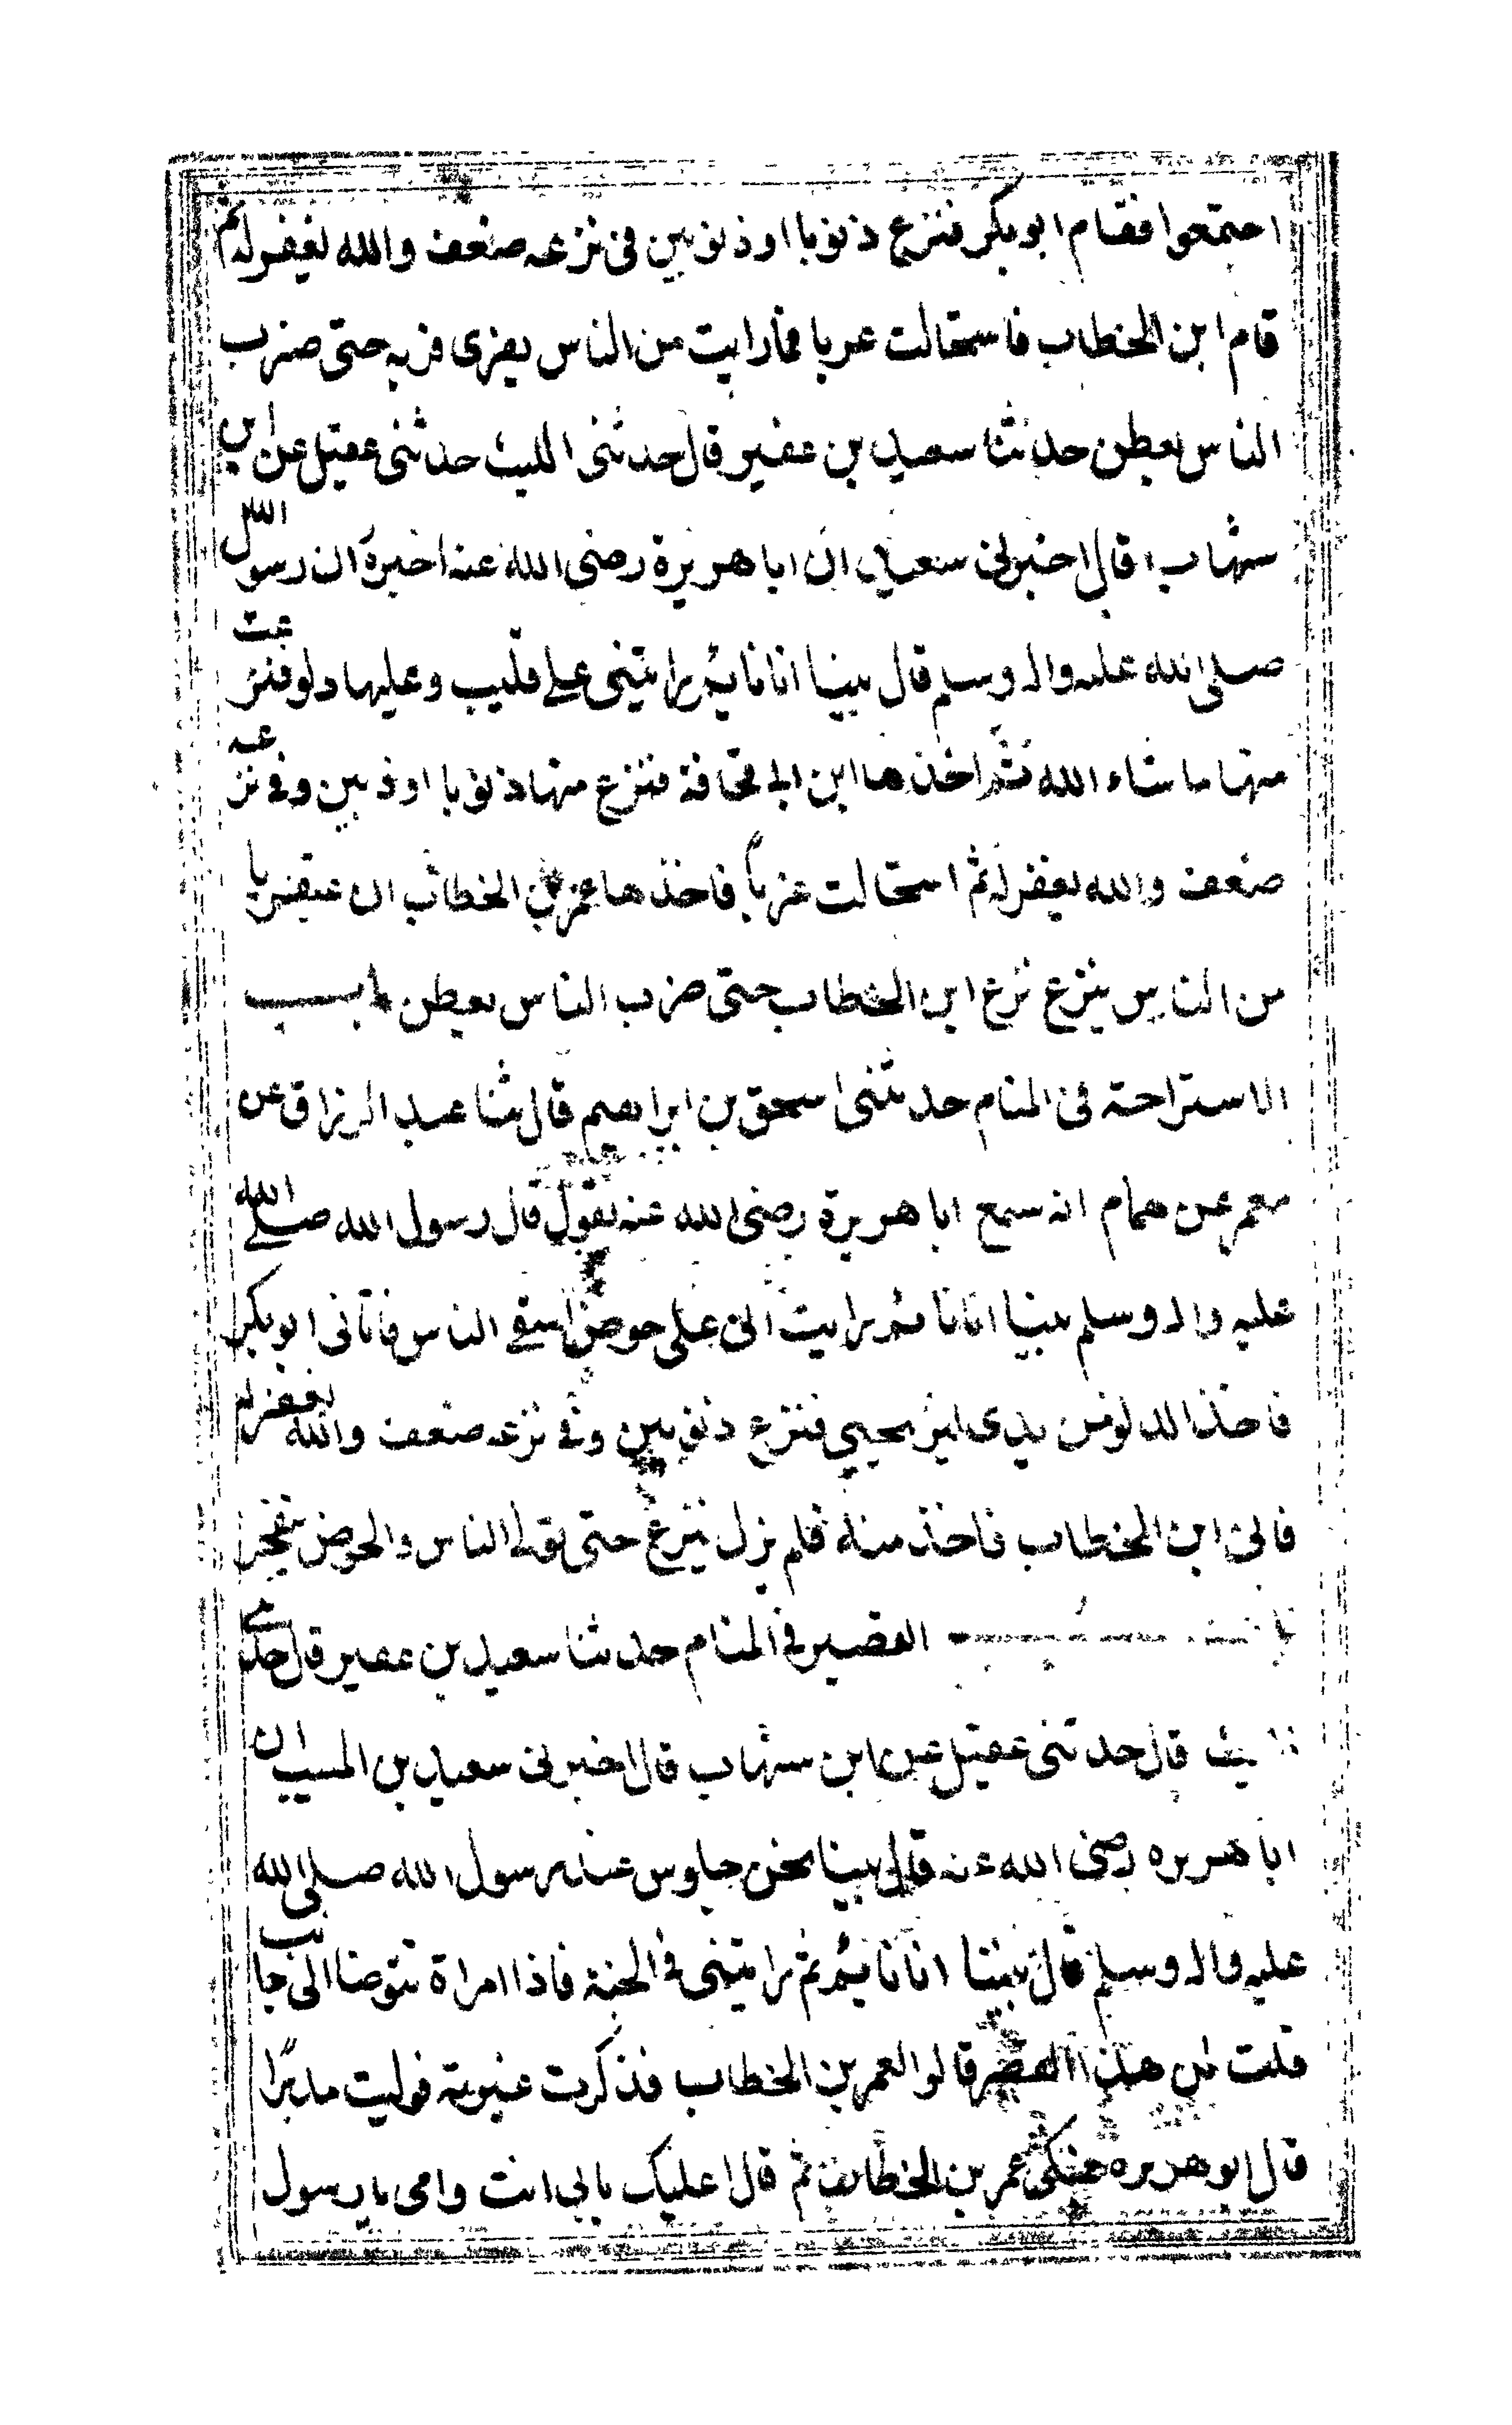 اجتمعوا فقام ابو بكر فنزع ذنوبا او ذنوبين فى نزعه ضعف والله يغفر له ثم
قام ابن الخطاب فاستحالت غربا فما رايت من الناس يفرى فريه حتى ضرب
الناس بعطن حدثنا سعيد بن عفير قال حدثنى الليث حدثنى عقيل عن ابن
شهاب قال اخبرنى سعيد ان ابا هريرة رضى الله عنه اخبره ان رسول الله
صلى الله عليه واله وسلم قال بينا انا نايم رايتنى على قليب وعليها دلو فنزعت
منها ما شاء الله ثم اخذها ابن ابى قحافة فنزع منها ذنوبا او ذ بين وفى نزعه
ضعف والله يغفر له ثم استحالت غربا فاخذها عمر بن الخطاب ان عبقريا
من الناس ينزع نزع ابن الخطاب حتى ضرب الناس بعطن باب
الاستراحة فى المنام حدثنى اسحق بن ابراهيم قال ثنا عبد الرزاق عن
معمر عن همام انه سمع ابا هريرة رضى الله عنه يقول قال رسول الله صلى الله
عليه واله وسلم بينا انا نايم رايت انى على حوض اسقى الناس فاتانى ابو بكر
فاخذ الدلو من يدى ليريحيى فنزع ذنوبين وفى نزعه ضعف والله يغفر له
فاتى ابن الخطاب فاخذ منه فلم يزل ينزع حتى تولى الناس والحوض يتفجر
باب القصر فى المنام حدثنا سعيد بن عفير قال حدثنى
الليث قال حدثنى عقيل عن ابن شهاب قال اخبرنى سعيد بن المسيب ان
ابا هريره رضى الله عنه قال بينا نحن جلوس عند رسول الله صلى الله
عليه واله وسلم قال بينا انا نايم ثم رايتنى فى الجنة فاذا امراة تتوضا الى جانب
قلت لمن هذا القصر قالوا لعمر بن الخطاب فذكرت غيرته فوليت مدبرا
قال ابو هريره فبكى عمر بن الخطاب ثم قال اعليك بابى انت وامى يا رسول